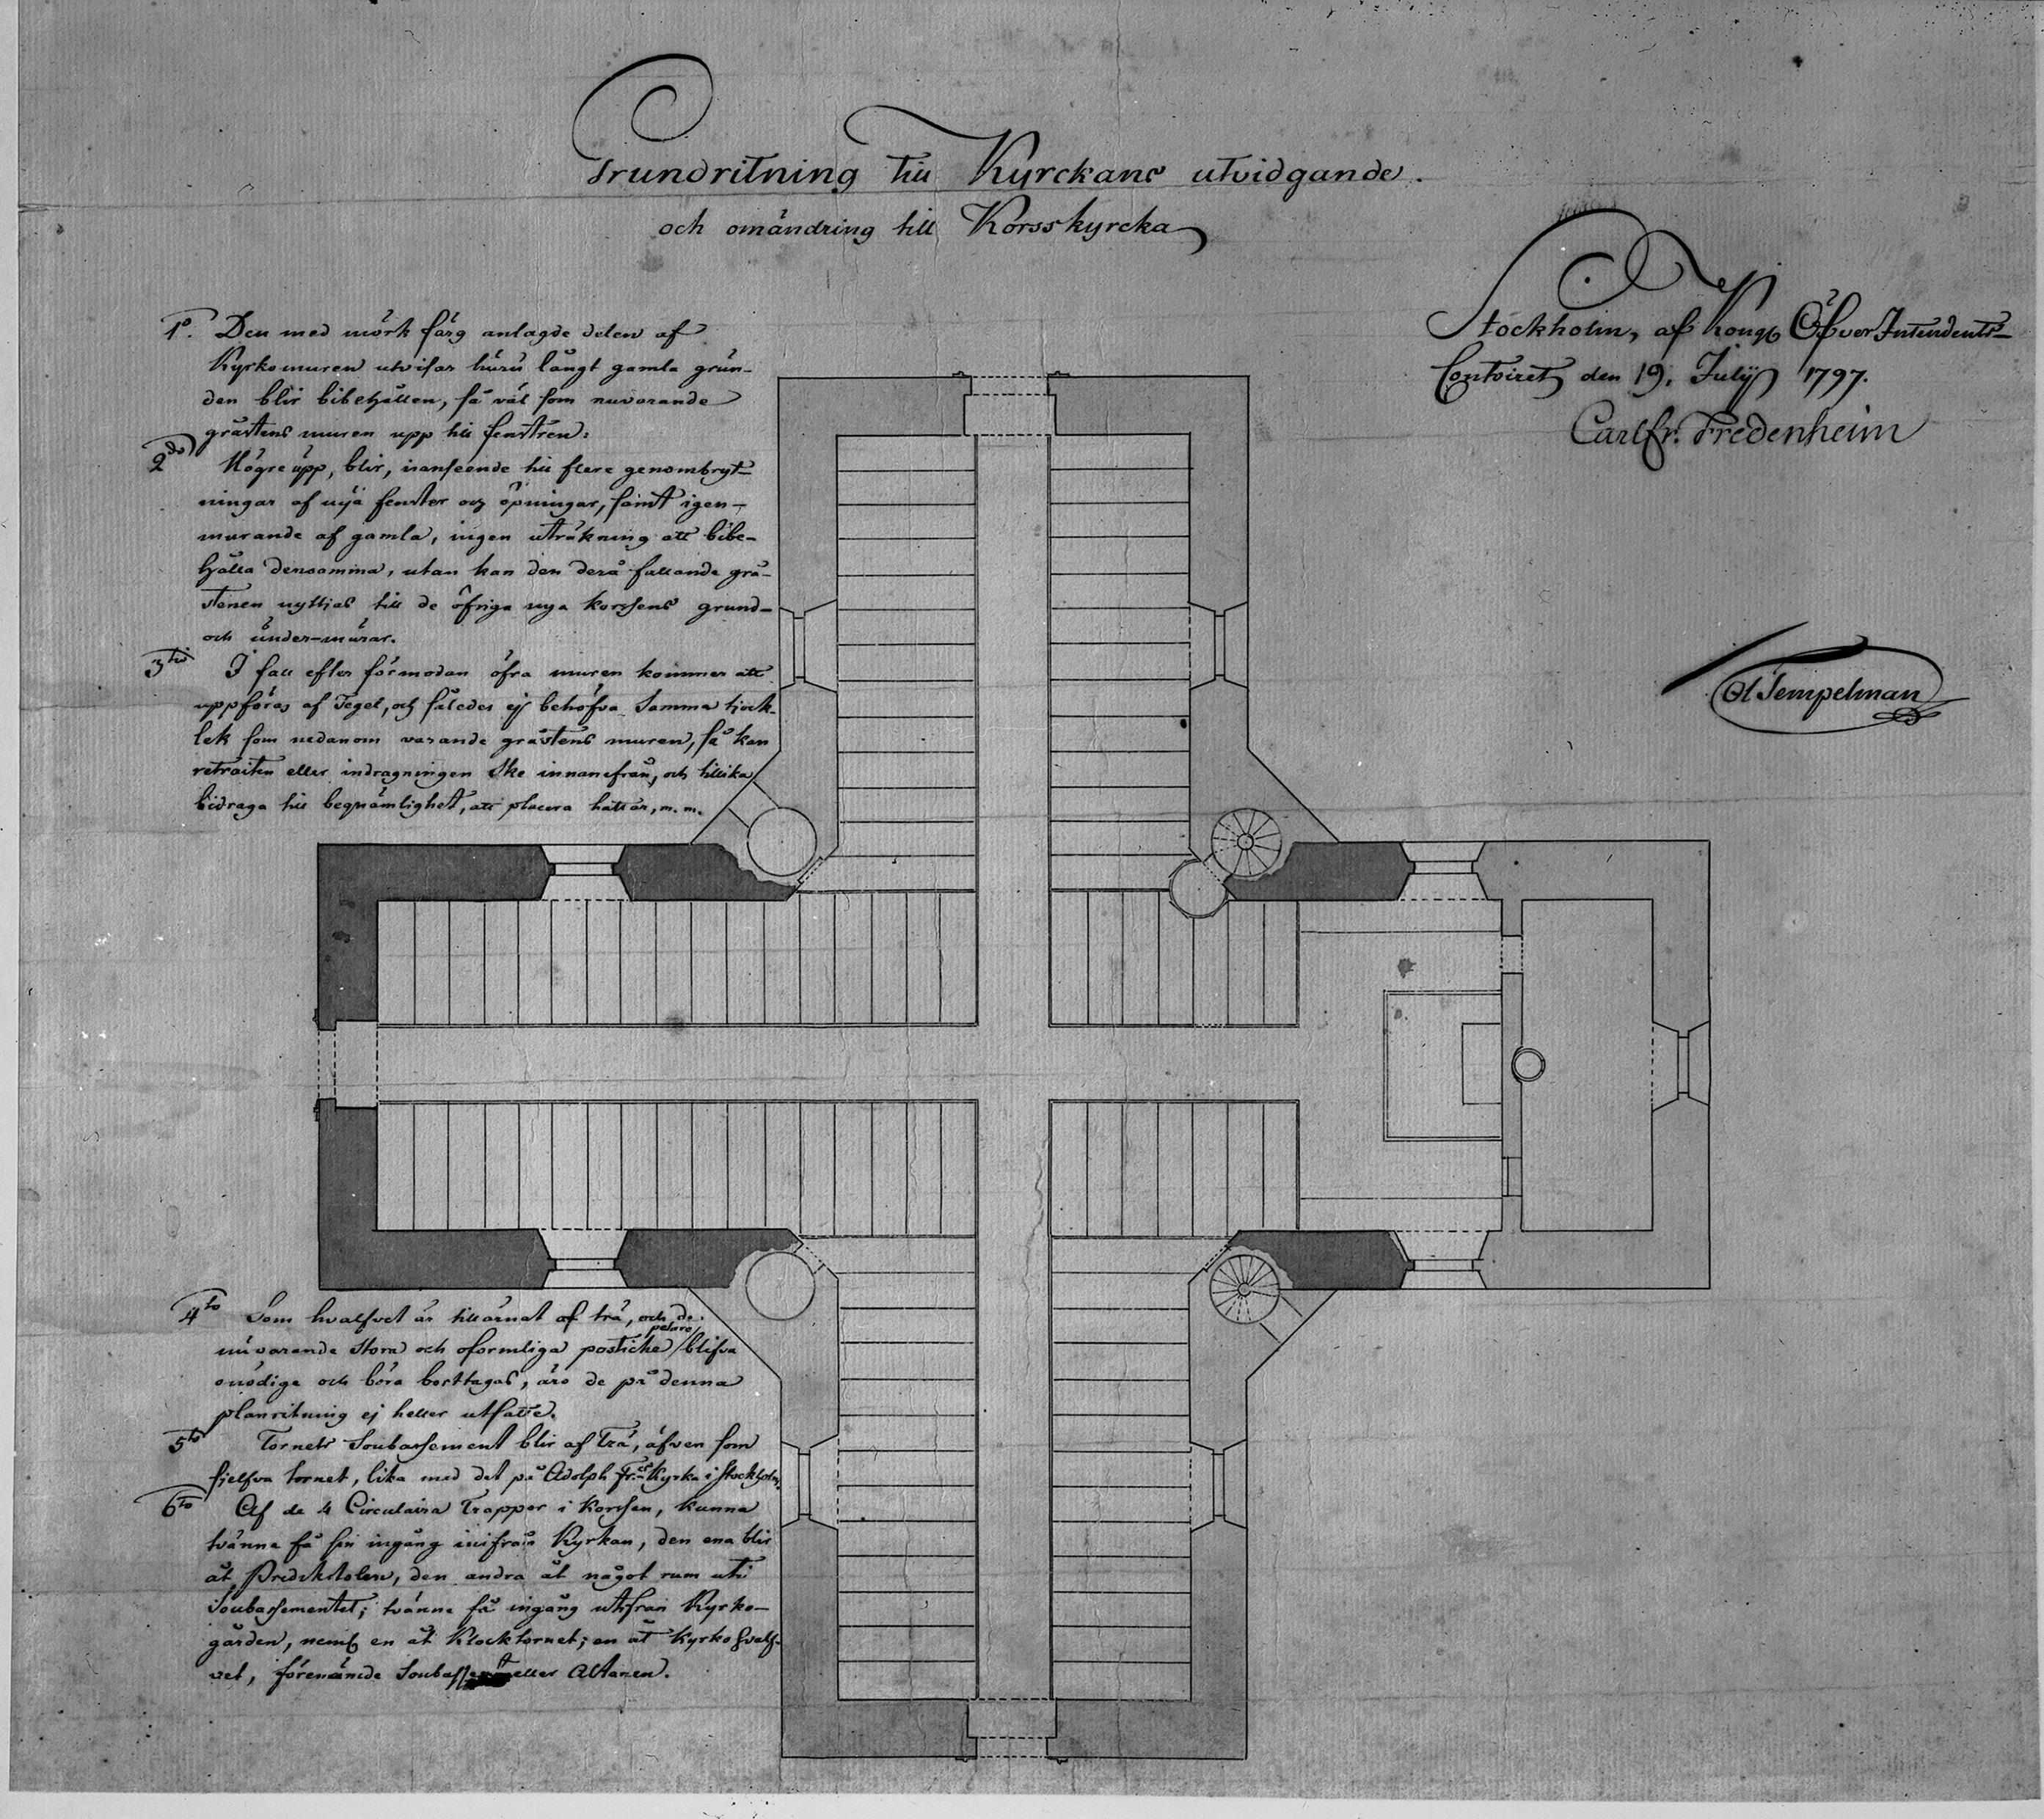 Grundritning till Kyrckans utvidgande.
och omändring till Korsskyrcka
Stockholm, af Kongl Öfver Intendents-
Contoiret den 19. Julij 1797.
Carl Fr. Fredenheim
Ol Tempelman
1º. Den med mörk färg anlagde delen af
Kyrkomuren utvisar huru långt gamla grun-
den blir bibehållen, så väl som nuvarande
gråstens muren upp till fenstren:
2do Högre upp, blir, i anseende till flere genombryt-
ningar af nya fenster och öpningar, samt igen-
murande af gamla, ingen uträkning att bibe-
hålla densamma, utan kan den derå fallande grå-
stenen nyttjas till de öfriga nya korssens grund-
och under-murar.
3tio I fall efter förmodan öfra muren kommer att
uppföras af Tegel, och således ej behöfva samma tjock-
lek som nedanom varande gråstens muren, så kan
retraiten eller indragningen ske innanefrån, och tillika
bidraga till beqvämlighet, att placera hattar, m. m.
4to Som hvalfvet är tillärnat af trä, och de
nuvarande stora och oformliga postiche pelare, blifva
onödige och böra borttagas, äro de på denna
planritning ej heller utsatte.
5to Tornets Soubassement blir af Trä, äfven som
sjelfva tornet, lika med det på Adolph Fr:cs Kyrka i Stockholm.
6to Af de 4 Circulaira Trappor i Korssen, kunna
tvänne få sin ingång inifrån Kyrkan, den ena blir
åt Predikstolen, den andra åt något rum uti
Soubassementet; tvänne få ingång utifrån Kyrko-
gården, neml en åt Klocktornet; en åt Kyrkohvalf-
vet, förenämde eller Altanen.